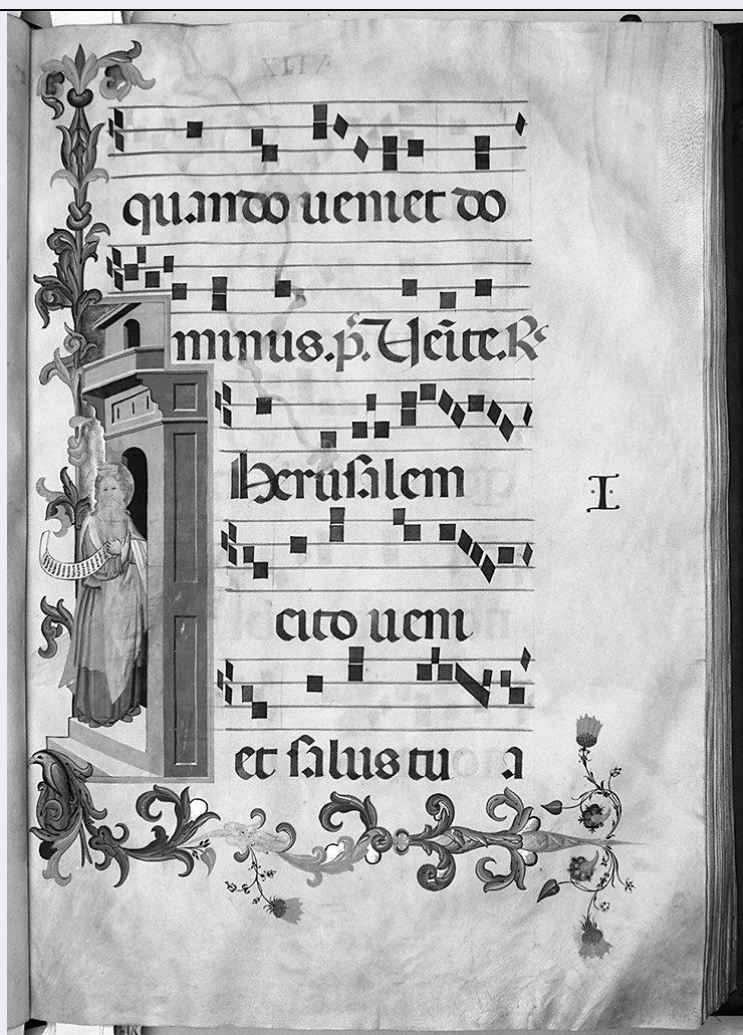 quando ueniet do
minus. p̃. Uẽite. R
herusalem
I
cito ueni
et salus tu a